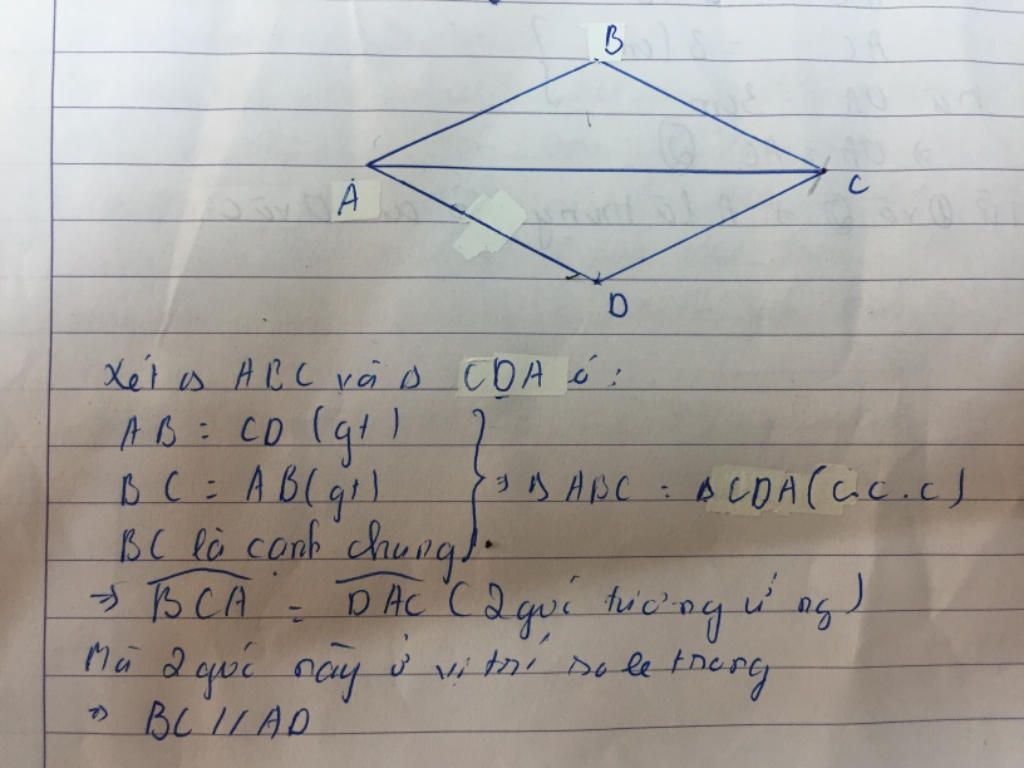 B
A
C
D
Xét Δ ABC và Δ CDA ó:
AB = CD (gt)
BC = AB (gt)
BC là cạnh chung
} => Δ ABC = Δ CDA (c.c.c)
=> BCA = DAC (2 góc tương ứng)
Mà 2 góc này ở vị trí so le trong
=> BC // AD